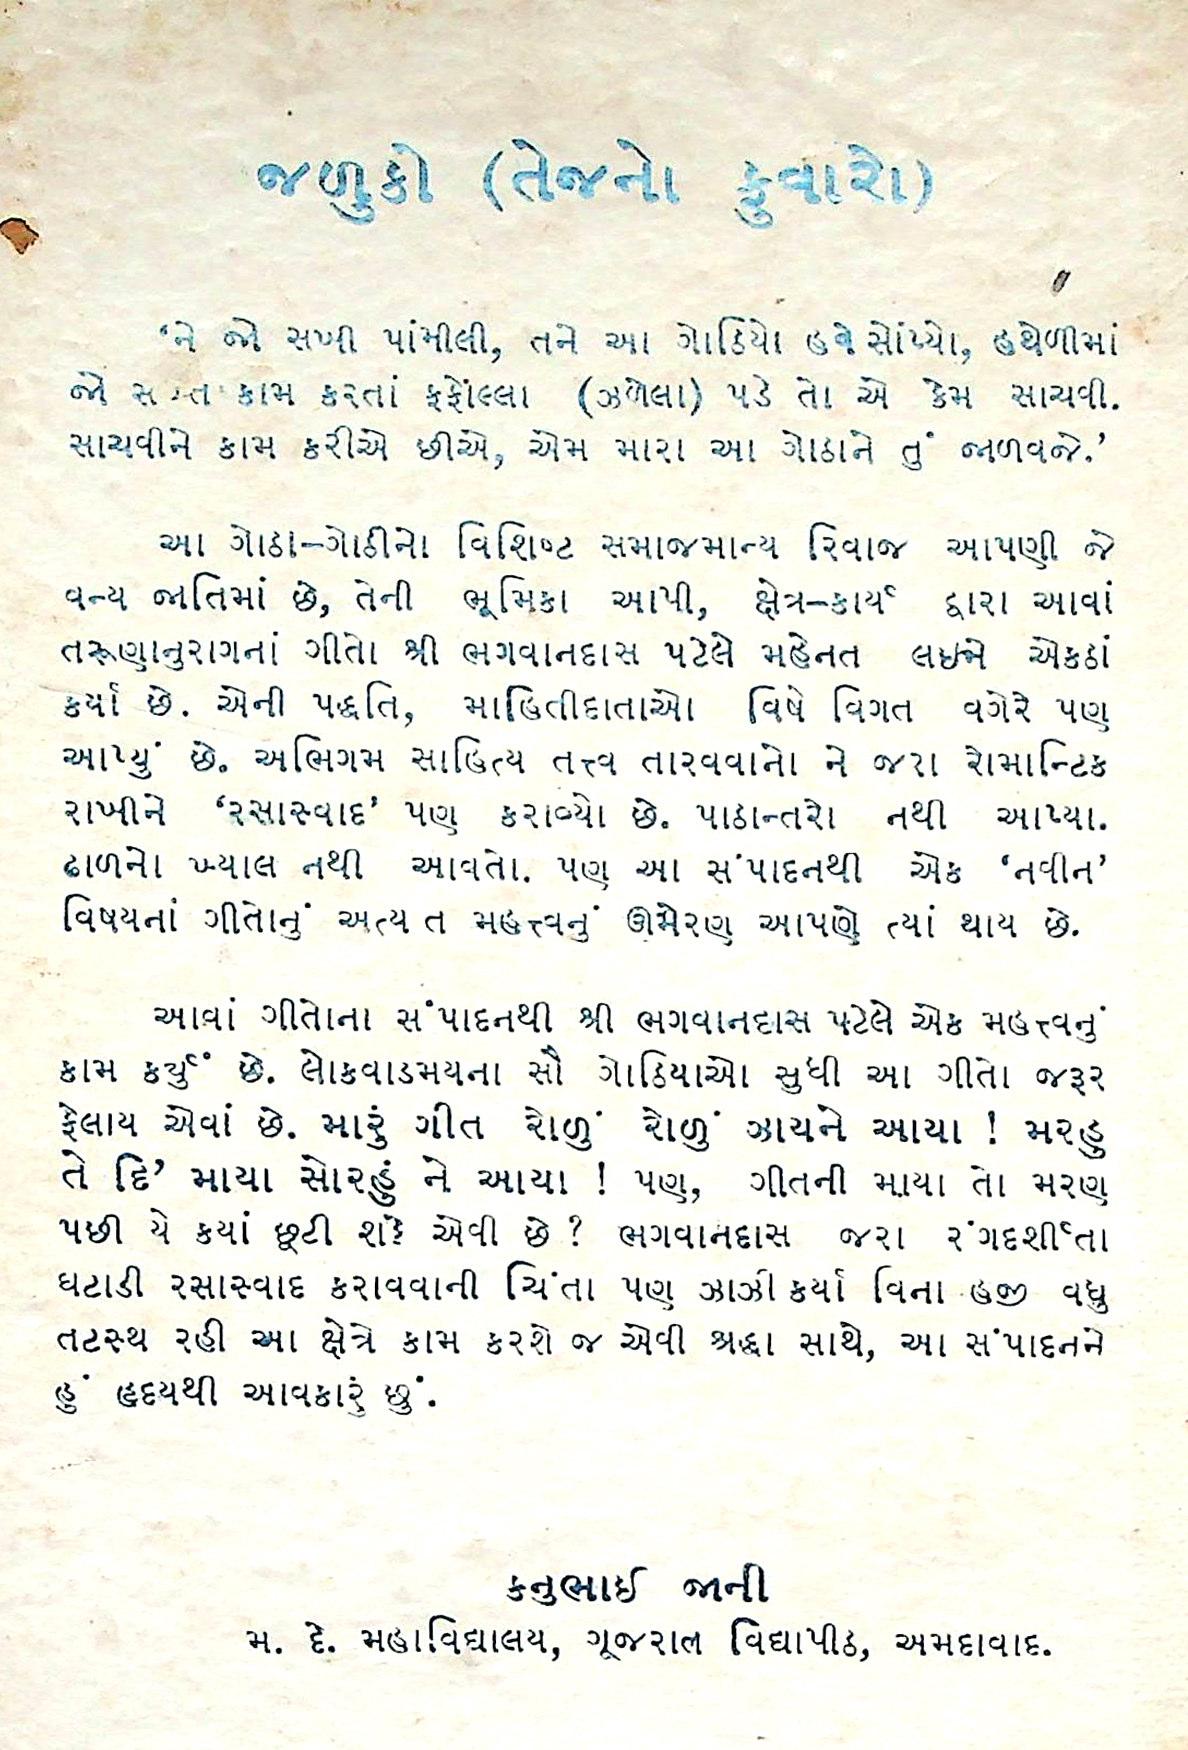 જળુકો (તેજનો ફુવારો)
‘ને જો સખી પાંમીલી, તને આ ગોઠિયો હવે સોંપ્યો, હથેળીમાં
જો કામ કરતાં ફફોલ્લા (ઝળેલા) પડે તો એ કેમ સાચવી.
સાચવીને કામ કરીએ છીએ, એમ મારા આ ગોઠાને તું જાળવજે.’
આ ગોઠા–ગોઠીનો વિશિષ્ટ સમાજમાન્ય રિવાજ આપણી જે
વન્ય જાતિમાં છે, તેની ભૂમિકા આપી, ક્ષેત્ર–કાર્ય દ્વારા આવાં
તરૂણાનુરાગનાં ગીતો શ્રી ભગવાનદાસ પટેલે મહેનત લઈને એકઠાં
કર્યાં છે. એની પદ્ધતિ, માહિતીદાતાઓ વિષે વિગત વગેરે પણ
આપ્યું છે. અભિગમ સાહિત્ય તત્ત્વ તારવવાનો ને જરા રોમાન્ટિક
રાખીને ‘રસાસ્વાદ’ પણ કરાવ્યો છે. પાઠાન્તરો નથી આપ્યા.
ઢાળનો ખ્યાલ નથી આવતો. પણ આ સંપાદનથી એક ‘નવીન’
વિષયનાં ગીતોનું અત્યંત મહત્ત્વનું ઊમેરણ આપણે ત્યાં થાય છે.
આવાં ગીતોના સંપાદનથી શ્રી ભગવાનદાસ પટેલે એક મહત્ત્વનું
કામ કર્યું છે. લોકવાડમયના સૌ ગોઠિયાઓ સુધી આ ગીતો જરૂર
ફેલાય એવાં છે. મારું ગીત રોળું રોળું ઝાયને આયા ! મરહુ
તે દિ’ માયા સોરહું ને આયા ! પણ, ગીતની માયા તો મરણ
પછી યે કયાં છૂટી શકે એવી છે ? ભગવાનદાસ જરા રંગદર્શીતા
ઘટાડી રસાસ્વાદ કરાવવાની ચિંતા પણ ઝાઝી કર્યા વિના હજી વધુ
તટસ્થ રહી આ ક્ષેત્રે કામ કરશે જ એવી શ્રદ્ધા સાથે, આ સંપાદનને
હું હૃદયથી આવકારું છું.
કનુભાઈ જાની
મ. દે. મહાવિદ્યાલય, ગૂજરાત વિદ્યાપીઠ, અમદાવાદ.